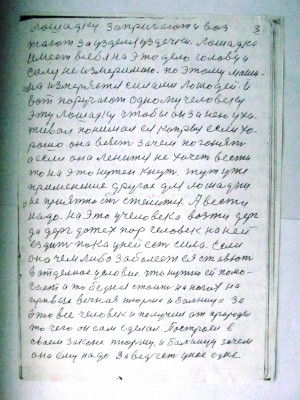 лошадку запрягают и воз
жают за узделя уздечки. Лошадка
имеет в себя на это дело голову и
силу не измеримаю. по этому маши-
на измеряется силами лошодей. и
вот поручают одному человеку
эту лошадку чтобы он за нею уха
живал понимал ея капризы если хо-
рошо она везет зачем погонять
а если она ленится не хочет везти
то на это нужен кнут. тут уже
применение другое для лошадки
не приятно от стешится. А вести
надо. на это у человека вожжи дер
да дерг до тех пор человек на ней
ездит пока у ней ест сила. Если
она чем либо заболеет ея ставют
в отделная условия что нужно ей помо-
гает а то бедная стоит на ногах на
привязе вечная тюрма и болница За
это все человек и получил от природы
то чего он сам сделал. Построен в
своем законе тюрму, и болницу зачем
она ему надо
3